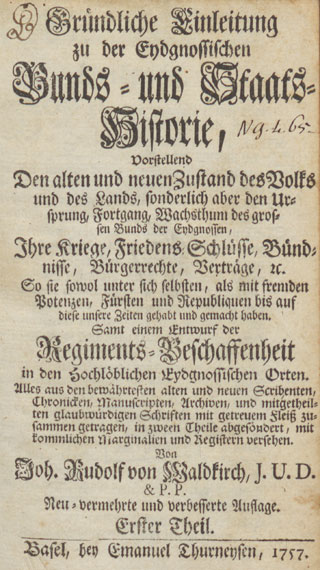 Gründliche Einleitung
zu der Eydgnossischen
Bunds- und Staats-
Historie,
Vorstellend
Den alten und neuen Zustand des Volks
und des Lands, sonderlich aber den Ur-
sprung, Fortgang, Wachsthum des gros-
sen Bunds der Eydgnossen,
Ihre Kriege, Friedens-Schlüsse, Bünd-
nisse, Bürgerrechte, Verträge, ꝛc.
So sie sowol unter sich selbsten, als mit fremden
Potenzen, Fürsten und Republiquen bis auf
diese unsere Zeiten gehabt und gemacht haben.
Samt einem Entwurf der
Regiments-Beschaffenheit
in den Hochlöblichen Eydgnossischen Orten.
Alles aus den bewährtesten alten und neuen Scribenten,
Chronicken, Manuscripten, Archiven, und mitgetheil-
ten glaubwürdigen Schriften mit getreuem Fleiß zu-
sammen getragen, in zween Theile abgesöndert, mit
kommlichen Marginalien und Registern versehen.
Von
Joh. Rudolf von Waldkirch, J. U. D.
& P. P.
Neu-vermehrte und verbesserte Auflage.
Erster Theil.
Basel, bey Emanuel Thurneysen, 1757.